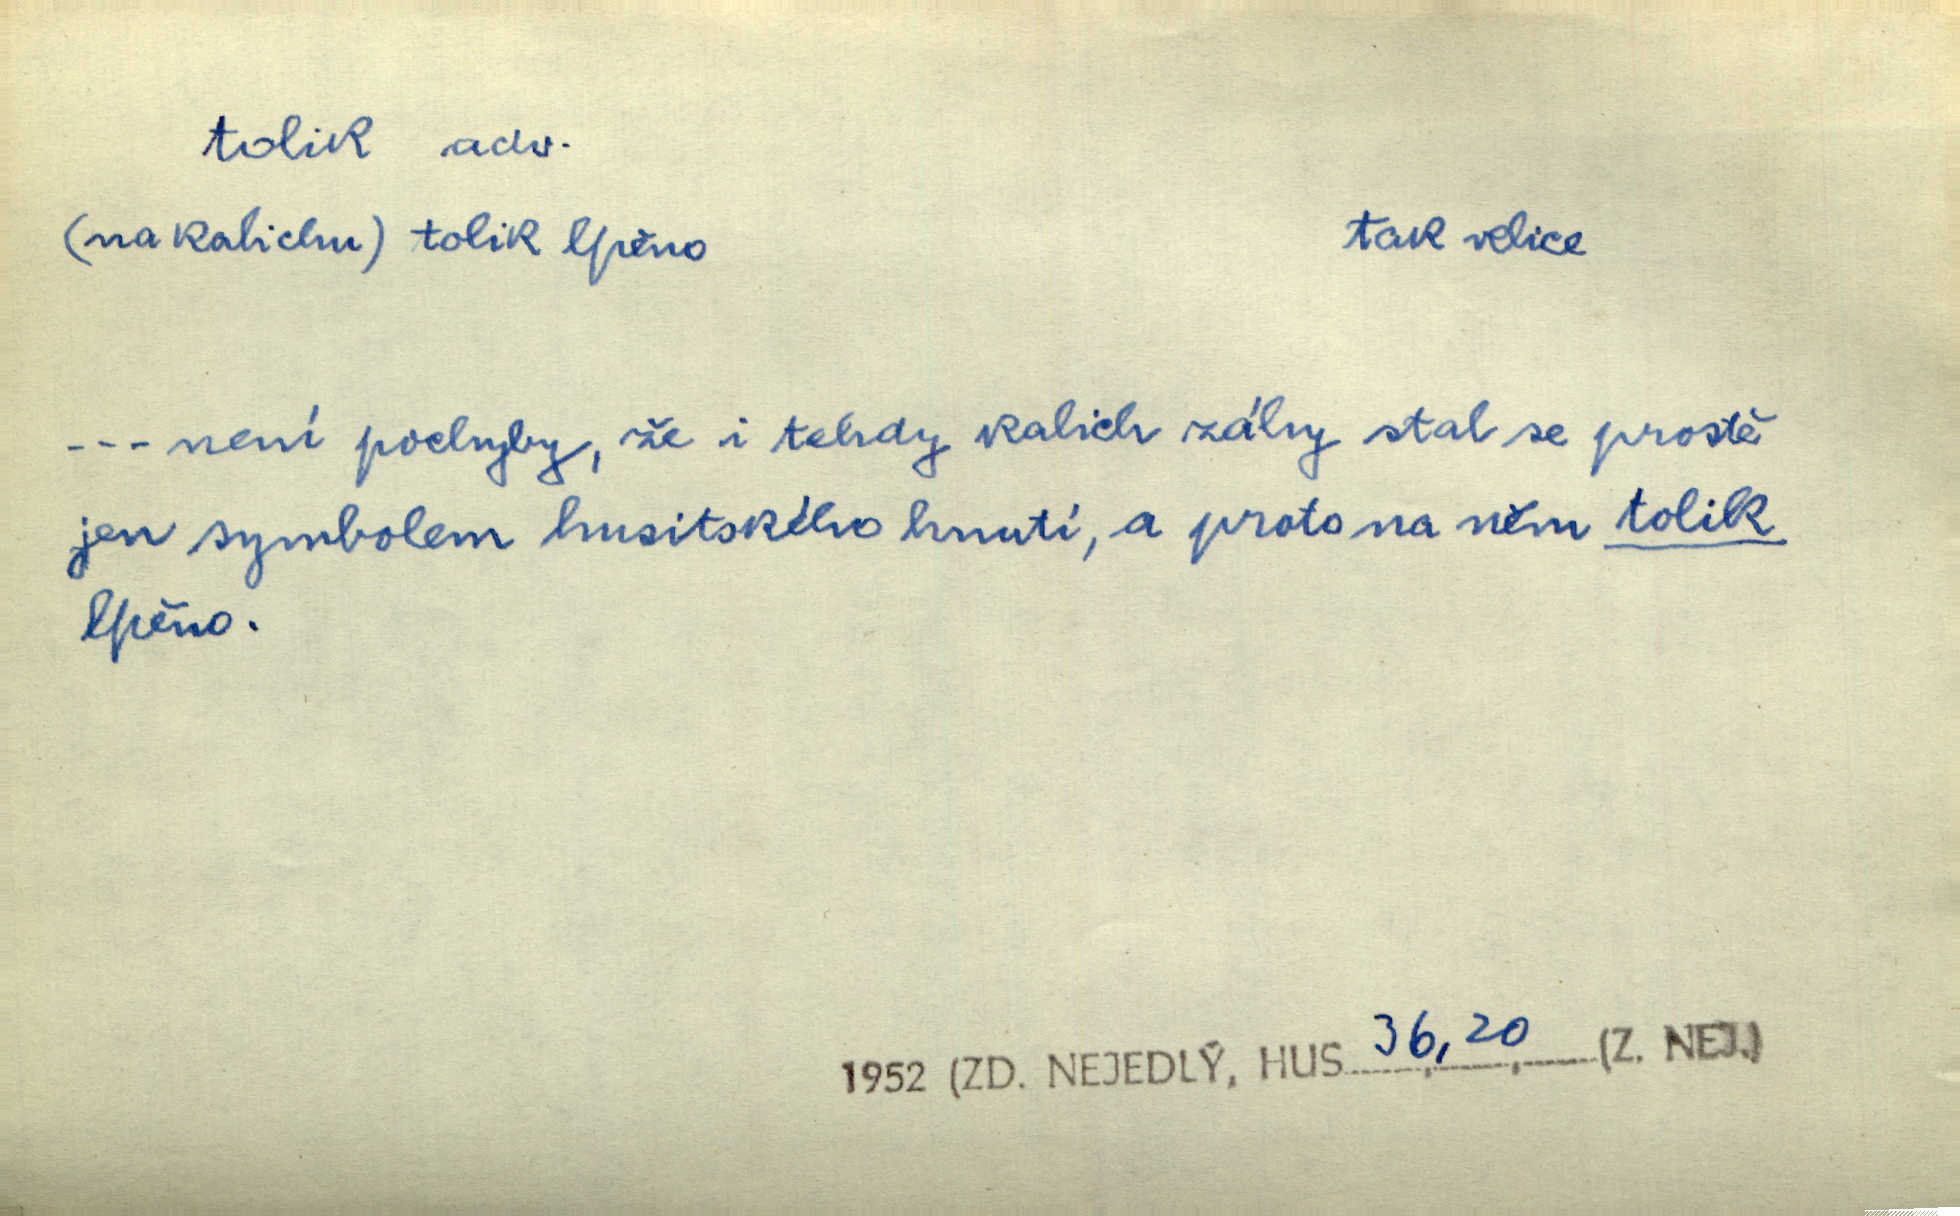 tolik adv.
(na kalichu) tolik lpěno
tak velice
--- není pochyby, že i tehdy kalich záhy stal se prostě
jen symbolem husitského hnutí, a proto na něm tolik
lpěno.
1952 (ZD. NEJEDLÝ, HUS 36,20 (Z. NEJ.)